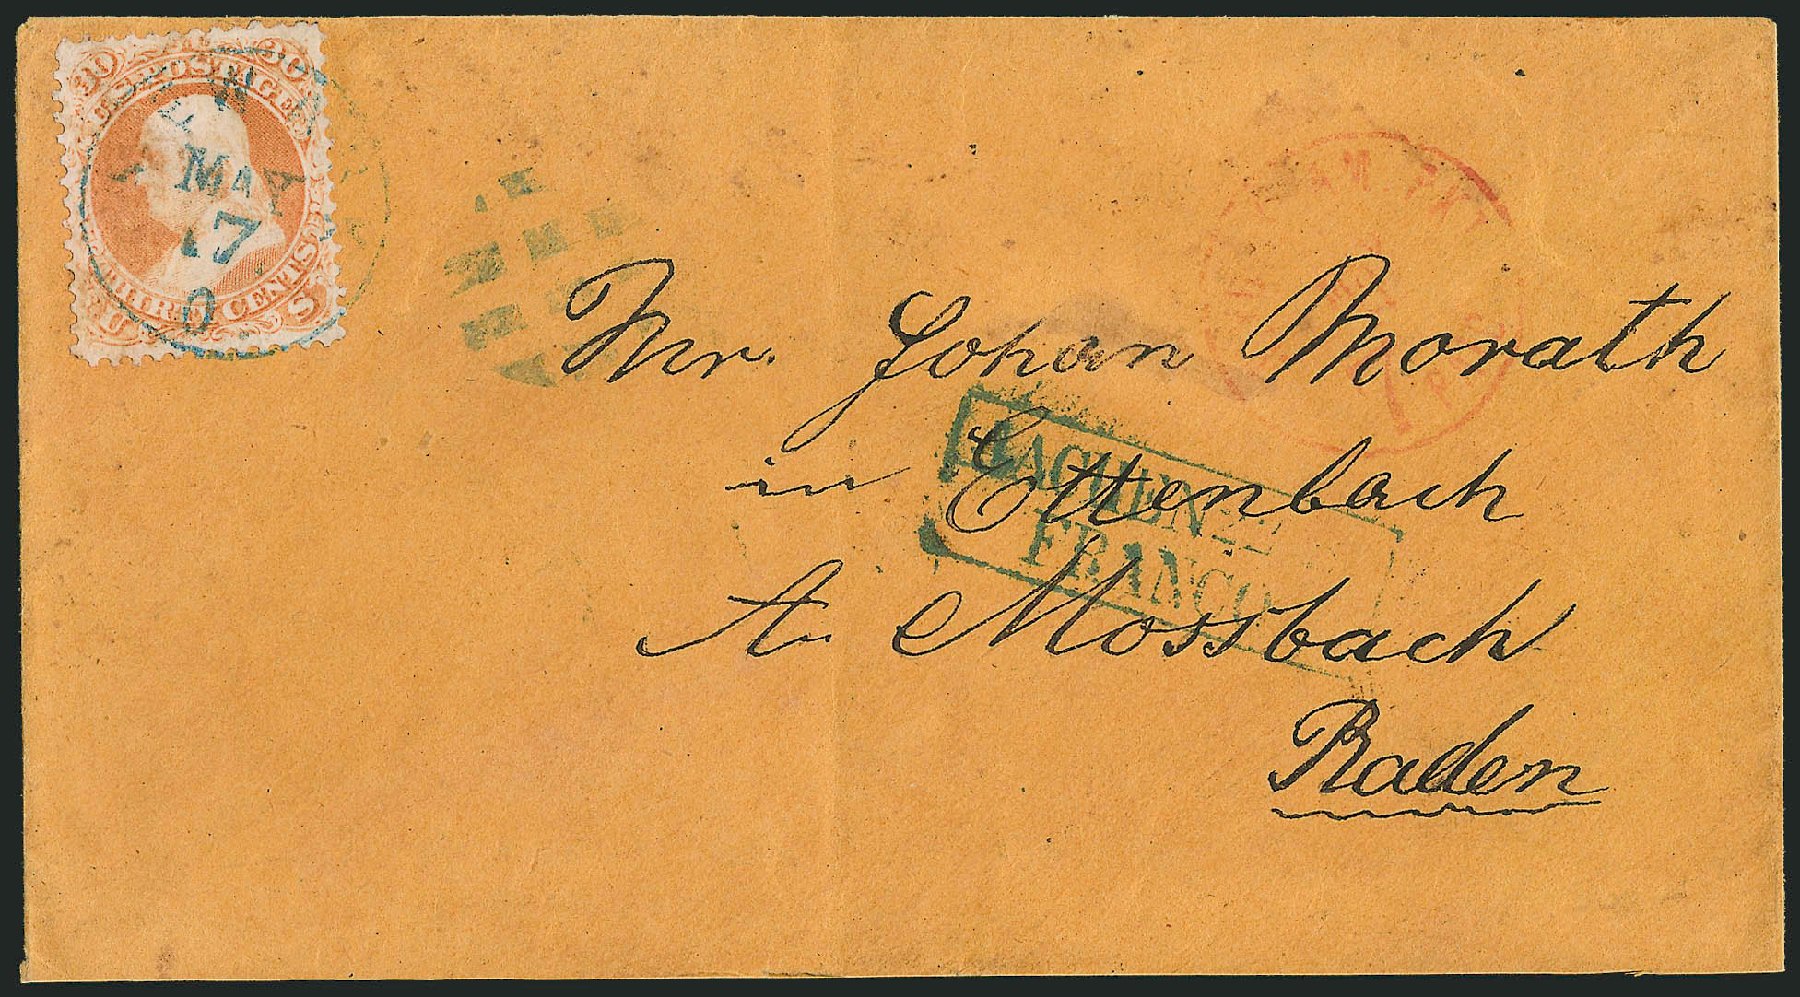 30 30
U.S. POSTAGE
THIRTY CENTS
U S
MAY
17
Mr. Johan Morath
in Ettenbach
AACHEN
FRANCO
A. Mossbach
Baden